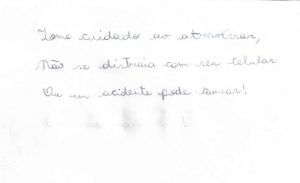 Tome cuidado ao atravessar,
Não se distraia com seu celular
Ou um acidente pode causar!